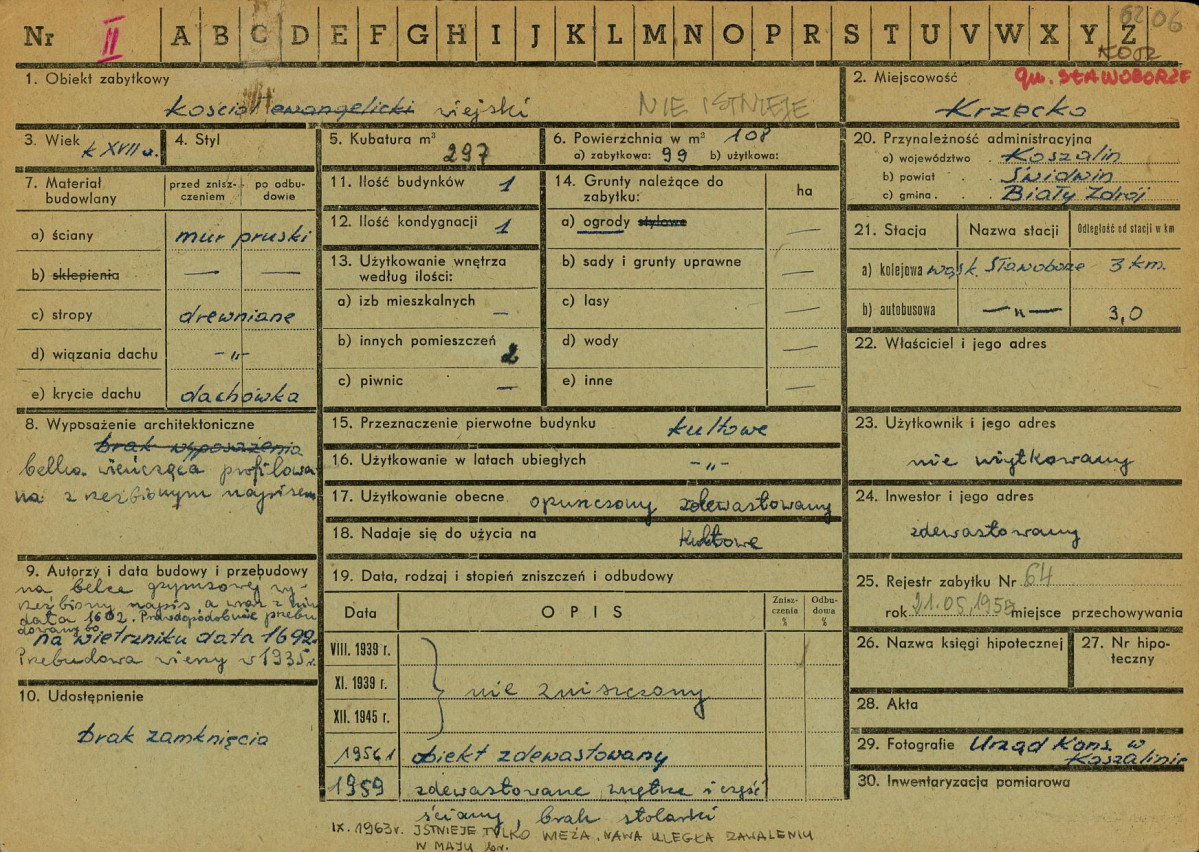 Nr II A B C D E F G H I J K L M N O P R S T U V W X Y Z 62 06
KOSZ
1. Obiekt zabytkowy
kościół ewangelicki wiejski NIE ISTNIEJE
2. Miejscowość gm. SŁAWOBORZE
Krzecko
3. Wiek k XVII w.
4. Styl
5. Kubatura m³
297
6. Powierzchnia w m² 108
a) zabytkowa: 99 b) użytkowa:
20. Przynależność administracyjna
a) województwo . Koszalin
b) powiat . Świdwin
c) gmina . . Biały Zdrój
7. Materiał budowlany
przed zniszczeniem
po odbudowie
a) ściany mur pruski
b) sklepienia — —
c) stropy drewniane
d) wiązania dachu -„-
e) krycie dachu dachówka
11. Ilość budynków 1
12. Ilość kondygnacji 1
13. Użytkowanie wnętrza
według ilości:
a) izb mieszkalnych –
b) innych pomieszczeń 2
c) piwnic —
14. Grunty należące do
zabytku:
ha
a) ogrody stylowe —
b) sady i grunty uprawne —
c) lasy —
d) wody —
e) inne —
21. Stacja Nazwa stacji Odległość od stacji w km
a) kolejowa wąsk. Sławoborze 3 km.
b) autobusowa —„— 3,0
22. Właściciel i jego adres
8. Wyposażenie architektoniczne
brak wyposażenia
belka wieńcząca profilowa-
na z rzeźbionym napisem
15. Przeznaczenie pierwotne budynku kultowe
16. Użytkowanie w latach ubiegłych -„-
17. Użytkowanie obecne opuszczony zdewastowany
18. Nadaje się do użycia na kultowe
23. Użytkownik i jego adres
nie użytkowany
24. Inwestor i jego adres
zdewastowany
9. Autorzy i data budowy i przebudowy
na belce gzymsowej wy-
rzeźbiony napis a wraz z nim
data 1602. Prawdopodobnie przebu
dowany bo
na wietrzniku data 1692.
Przebudowa wieży w 1935 r.
10. Udostępnienie
brak zamknięcia
19. Data, rodzaj i stopień zniszczeń i odbudowy
Data OPIS Zniszczenia % Odbudowa %
VIII. 1939 r.
XI. 1939 r. nie zniszczony
XII. 1945 r.
1956 r obiekt zdewastowany
1959 zdewastowane wnętrze i część
ściany, brak stolarki
IX. 1963 r. ISTNIEJE TYLKO WIEŻA. NAWA ULEGŁA ZAWALENIU
W MAJU br.
25. Rejestr zabytku Nr 64
rok 21.05.1959 miejsce przechowywania
26. Nazwa księgi hipotecznej
27. Nr hipoteczny
28. Akta
29. Fotografie Urząd Kons. w
Koszalinie
30. Inwentaryzacja pomiarowa